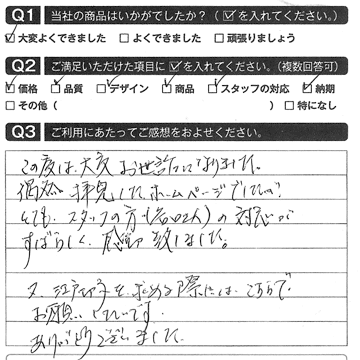 Q1 当社の商品はいかがでしたか?(☑を入れてください。)
☑大変よくできました □よくできました □頑張りましょう
Q2 ご満足いただけた項目に☑を入れてください。(複数回答可)
☑価格 ☑品質 ☑デザイン ☑商品 ☑スタッフの対応 ☑納期
□その他( ) □特になし
Q3 ご利用にあたってご感想をおよせください。
この度は、大変お世話になりました。
偶然拝見したホームページでしたが
とても、スタッフの方( )の対応が
すばらしく、感動致しました。
又、江戸切子を求める際には、こちらで
お願いしたいです。
ありがとうございました。